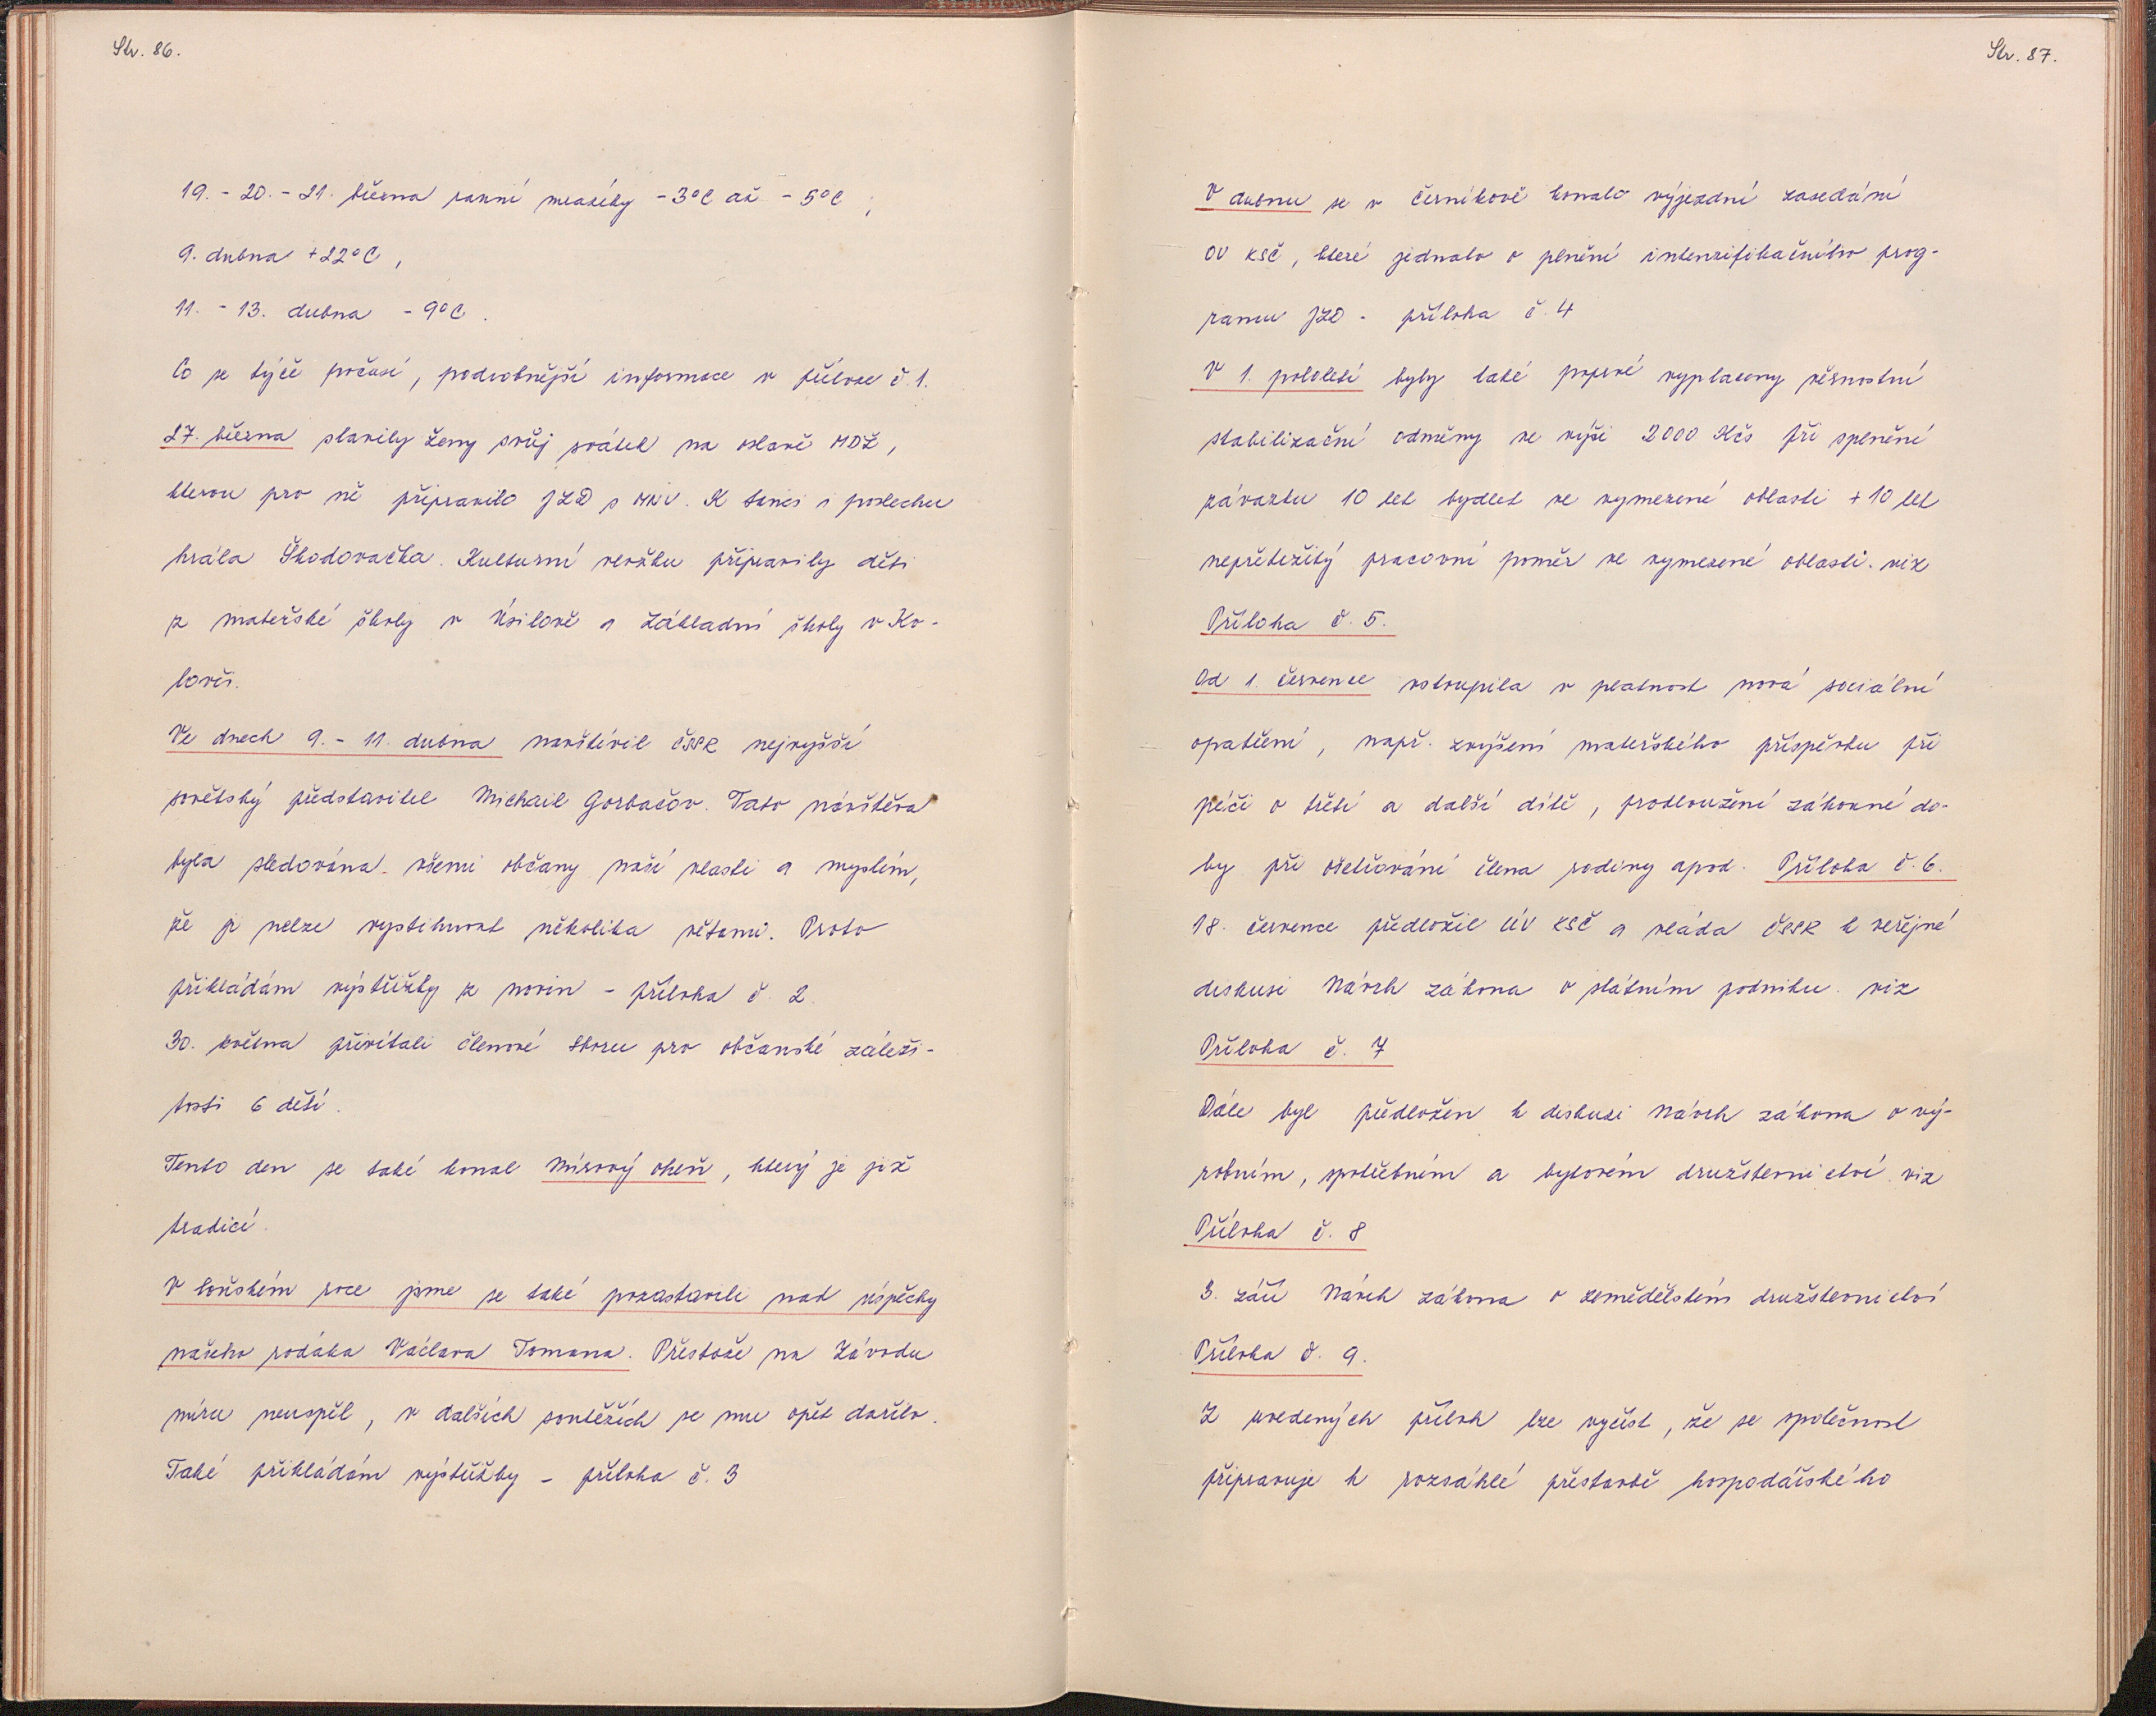 Str. 86.
19. - 20. - 21. března ranní mrazíky -3°C až -5°C ;
9. dubna +22°C ,
11. - 13. dubna -9°C .
Co se týče počasí, podrobnější informace v příloze č. 1.
27. března slavily ženy svůj svátek na oslavě MDŽ,
kterou pro ně připravilo JZD s MNV. K tanci i poslechu
hrála Škodovačka. Kulturní vložku připravily děti
z mateřské školy v Úsilově a Základní školy v Ko-
lovči.
Ve dnech 9. - 11. dubna navštívil ČSSR nejvyšší
sovětský představitel Michail Gorbačov. Tato návštěva
byla sledována všemi občany naší vlasti a myslím,
že ji nelze vystihnout několika větami. Proto
přikládám výstřižky z novin - příloha č. 2.
30. května přivítali členové Sboru pro občanské záleži-
tosti 6 dětí.
Tento den se také konal Mírový oheň, který je již
tradicí.
V loňském roce jsme se také pozastavili nad úspěchy
našeho rodáka Václava Tomana. Přestože na Závodu
míru neuspěl, v dalších soutěžích se mu opět dařilo.
Také přikládám výstřižky - příloha č. 3
Str. 87.
V dubnu se v Černíkově konalo výjezdní zasedání
OV KSČ, které jednalo o plnění intenzifikačního prog-
ramu JZD - příloha č. 4
V 1. pololetí byly také poprvé vyplaceny věrnostní
stabilizační odměny ve výši 2000 Kčs při splnění
závazku 10 let bydlet ve vymezené oblasti + 10 let
nepřetržitý pracovní poměr ve vymezené oblasti. viz
Příloha č. 5.
Od 1. července vstoupila v platnost nová sociální
opatření, např. zvýšení mateřského příspěvku při
péči o třetí a další dítě, prodloužení zákonné do-
by při ošetřování člena rodiny apod. Příloha č. 6.
18. července předložil ÚV KSČ a vláda ČSSR k veřejné
diskusi Návrh zákona o státním podniku. viz
Příloha č. 7
Dále byl předložen k diskusi Návrh zákona o vý-
robním, spotřebním a bytovém družstevnictví viz
Příloha č. 8
3. září Návrh zákona o zemědělském družstevnictví
Příloha č. 9.
Z uvedených příloh lze vyčíst, že se společnost
připravuje k rozsáhlé přestavbě hospodářského